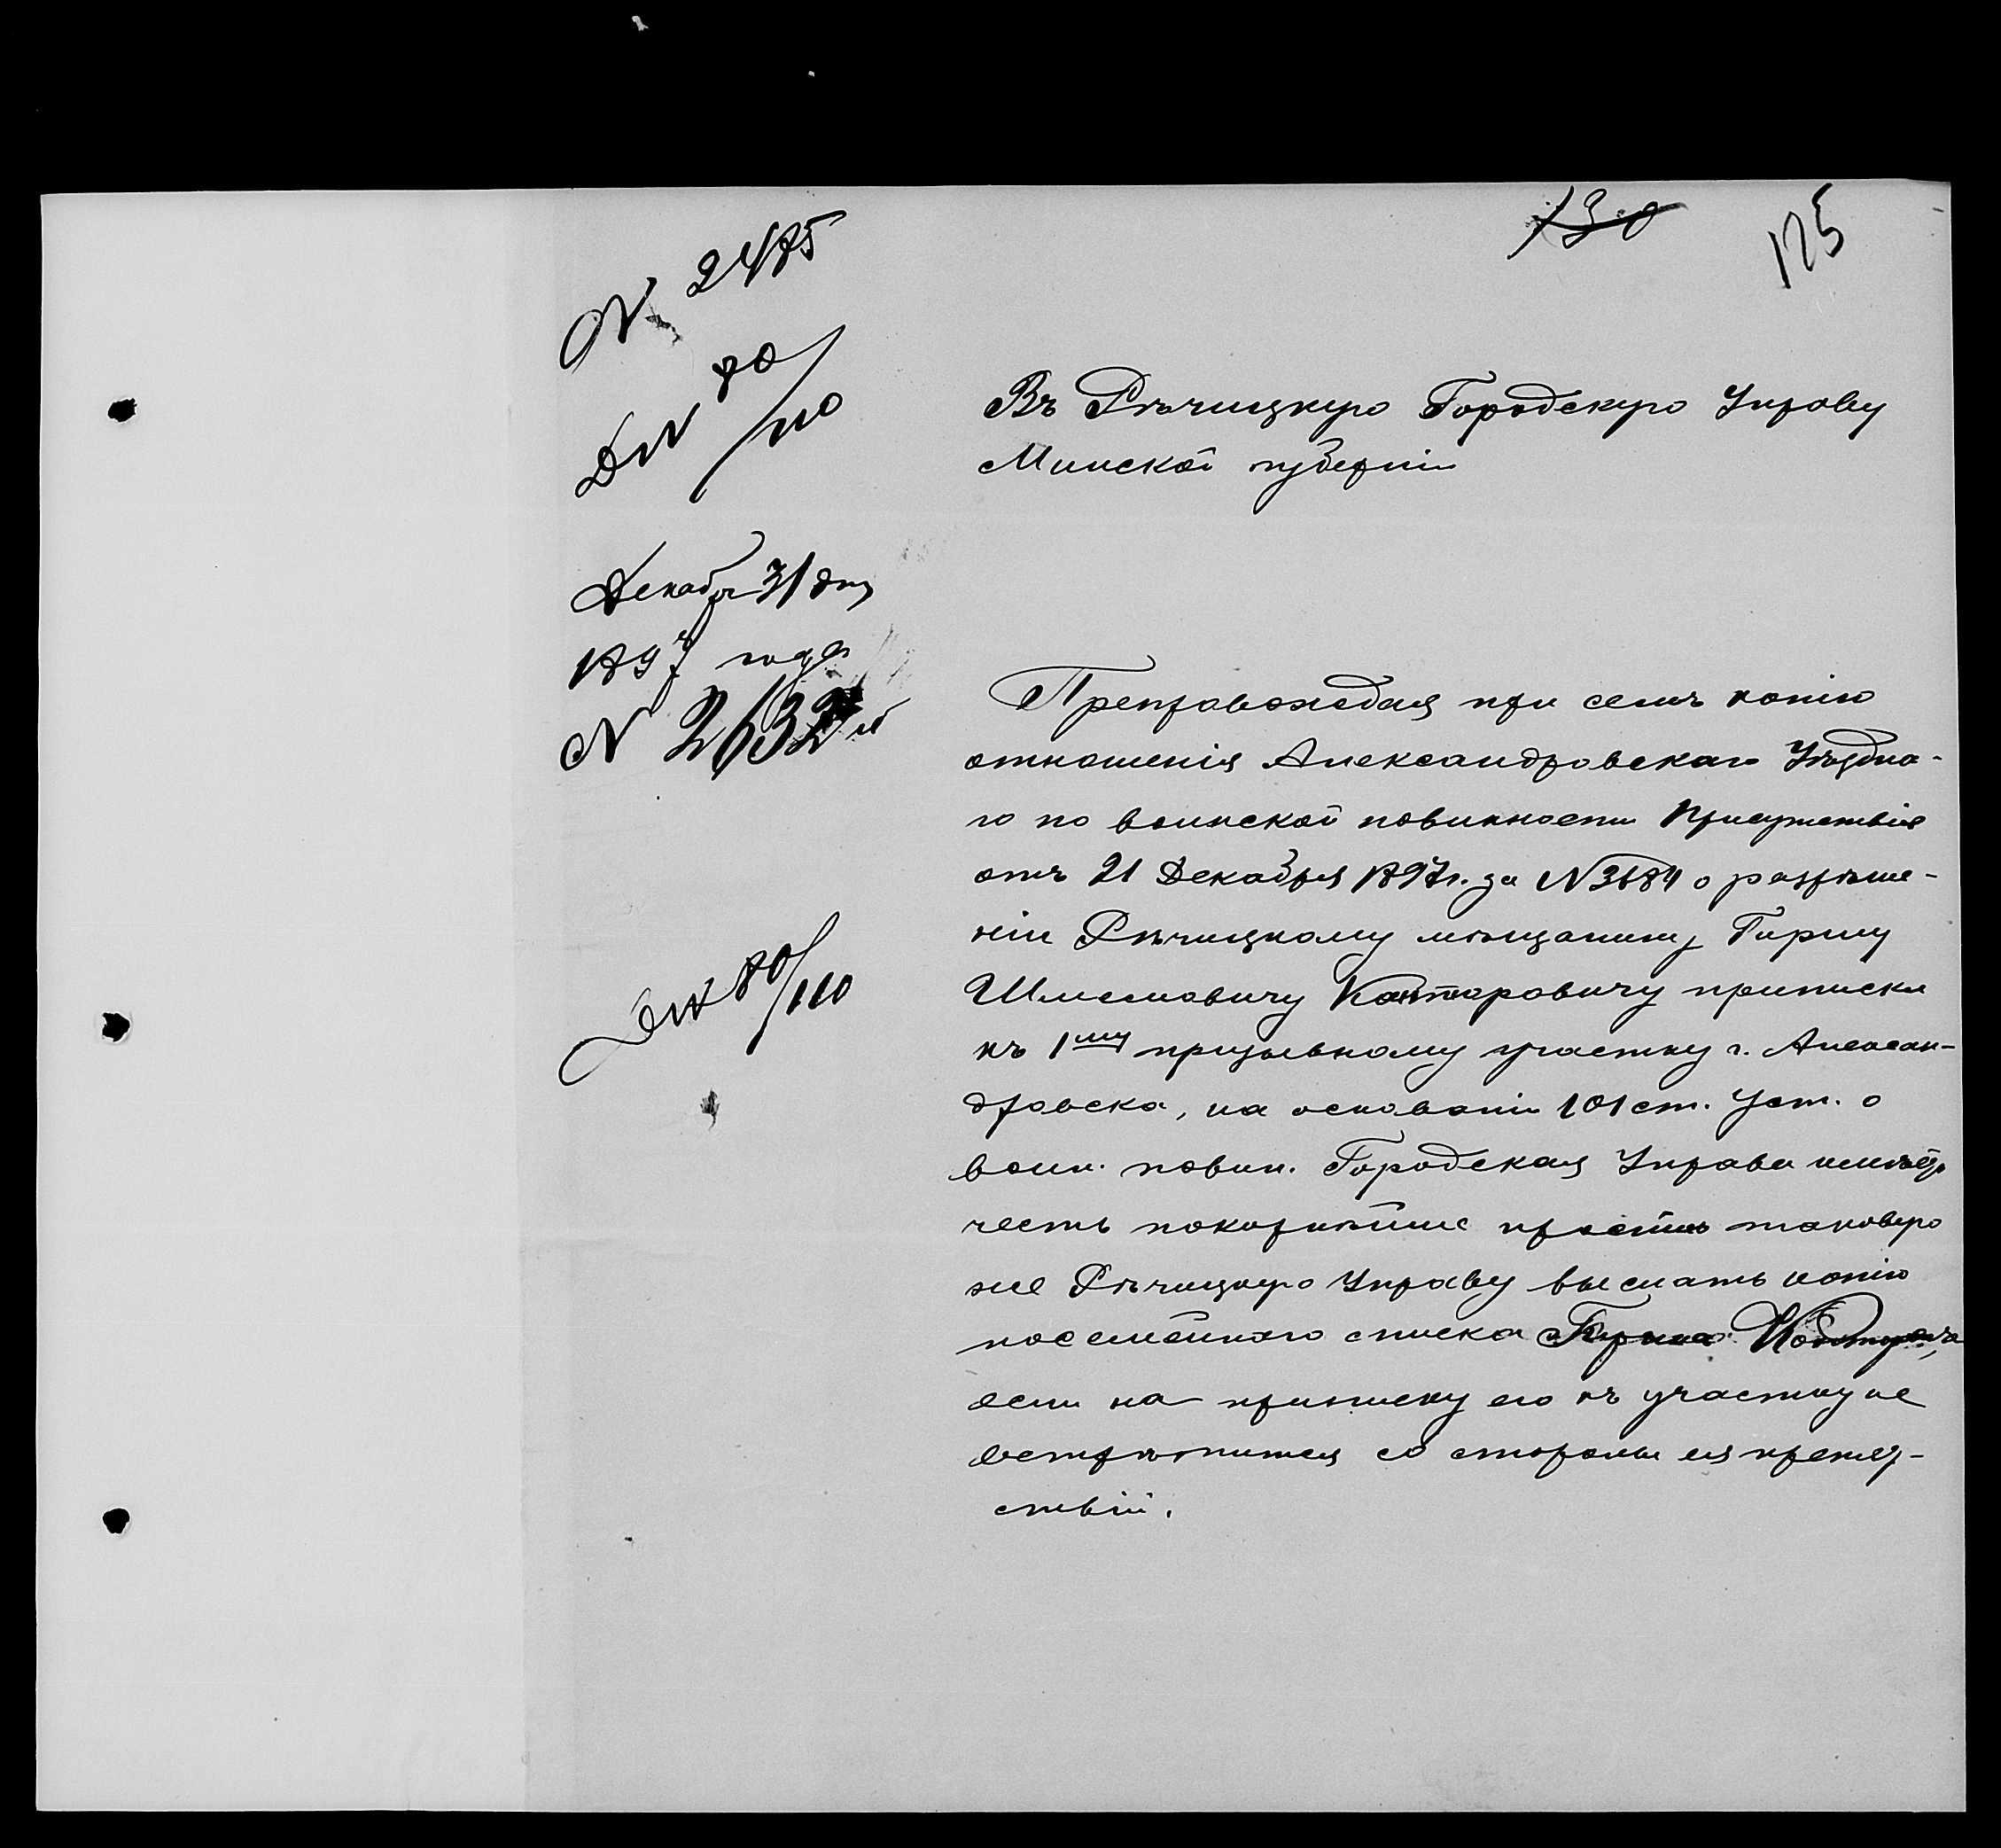 130
125
№ 2475
Д№ 80/110
Въ Рѣчицкую Городскую Управу
Минской губерніи
Декабря 31 дня
1897 года
№ 2632
Препровождая при семъ копію
отношенія Александровскаго Уѣздна-
го по воинской повинности Присутствія
отъ 21 Декабря 1897г. за №3684 о разрѣше-
ніи Рѣчицкому мѣщанину Гиршу
Шлемовичу Канторовичу приписки
къ 1му призывному участку г. Алексан-
дровска, на основаніи 101 ст. Уст. о
воин. повин. Городская Управа имѣетъ
честь покорнѣйше просить таковую
же Рѣчицкую Управу выслать копію
посемейного списка Гирша Канторовича,
если на приписку его къ участку не
встрѣтится со стороны ея препят-
ствій.
Д№ 80/110